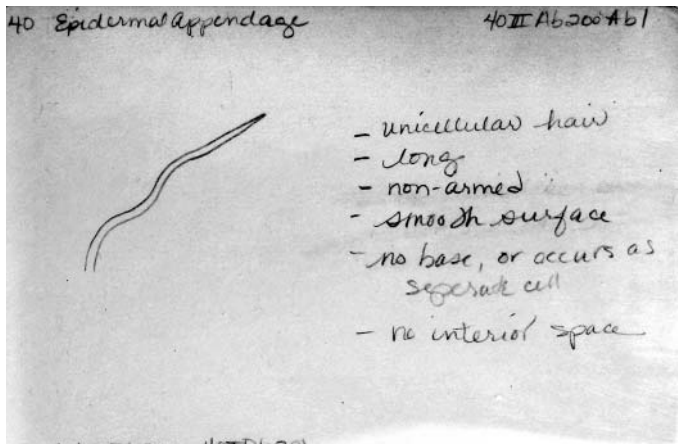 40 Epidermal Appendage 40 II Ab200Ab1
- unicellular hair
- long
- non-armed
- smooth surface
- no base, or occurs as
seperate cell
- no interior space